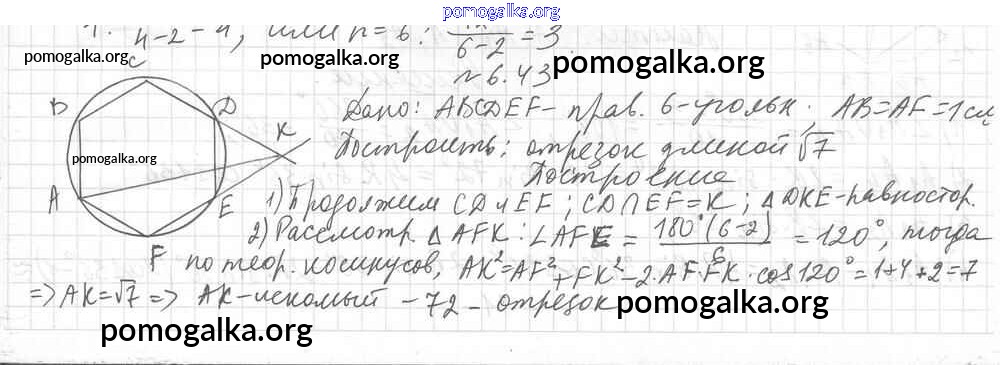 pomogalka.org
4-2-4, или n=6: 6-2 = 3
pomogalka.org pomogalka.org pomogalka.org
№6.43
C
B D K
A E
F
pomogalka.org
Дано: ABCDEF - прав. 6-угольн. AB=AF=1см
Построить: отрезок длиной √7
Построение
1) Продолжим CD и EF; CD∩EF=K; △DKE-равностор.
2) Рассмотр. △AFK: ∠AFE = 180°(6-2)/6 = 120°, тогда
по теор. косинусов, AK²=AF²+FK²-2·AF·FK·cos120°=1+4+2=7
=> AK=√7 => AK-искомый - 72 - отрезок
pomogalka.org pomogalka.org